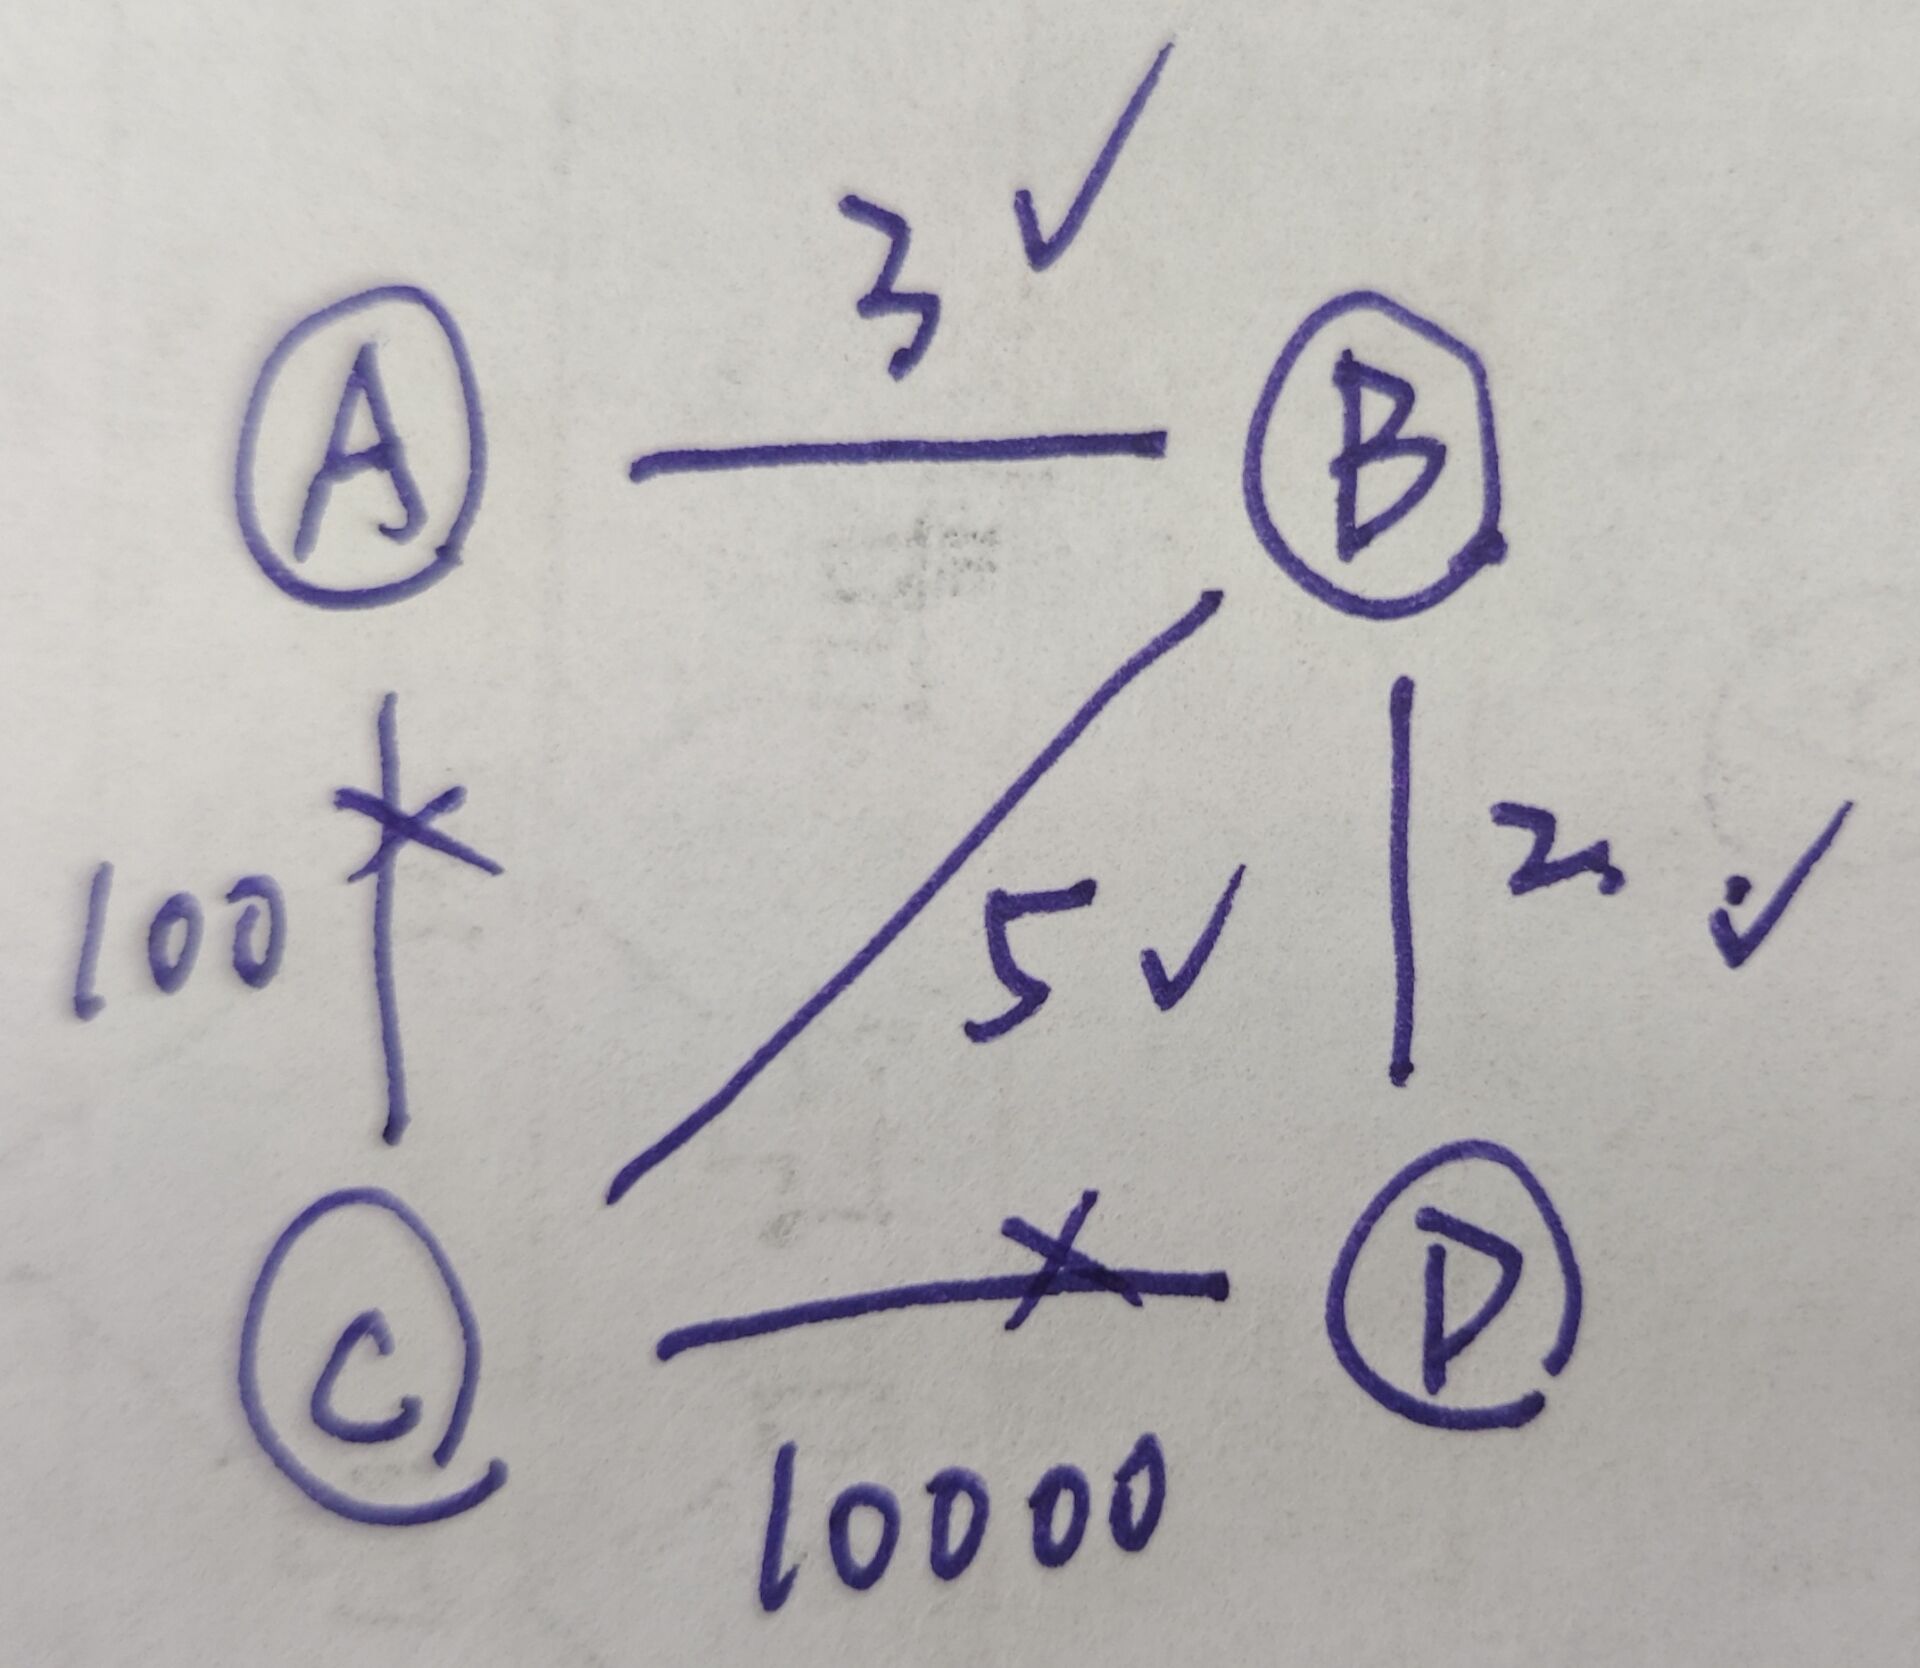 3 ✓
A B
100 5 ✓ 2 ✓
C D
10000